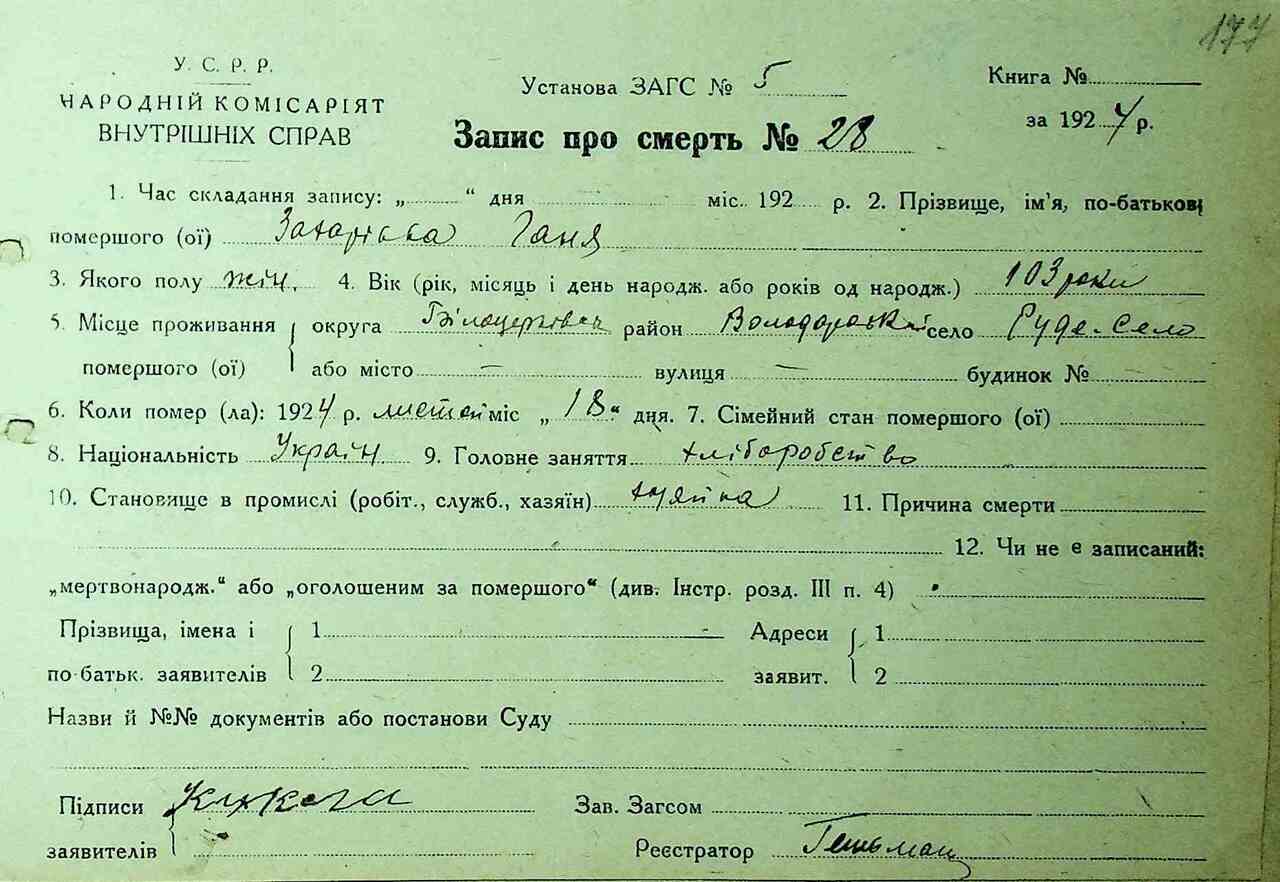 177
У. С. Р. Р.
НАРОДНІЙ КОМІСАРІЯТ
ВНУТРІШНІХ СПРАВ
Установа ЗАГС № 5
Запис про смерть № 28
Книга №
за 1924 р.
1. Час складання запису: „ “ дня міс. 192 р. 2. Прізвище, ім'я, по-батькові
помершого (ої) Захарівська Ганя
3. Якого полу жін. 4. Вік (рік, місяць і день народж. або років од народж.) 103 роки
5. Місце проживання округа Білоцерківськ район Володарський село Руде-Село
помершого (ої) або місто — вулиця — будинок №
6. Коли помер (ла): 1924 р. листоп міс „ 18 “ дня. 7. Сімейний стан помершого (ої)
8. Національність Україн 9. Головне заняття хліборобство
10. Становище в промислі (робіт., служб., хазяїн) 11. Причина смерти
12. Чи не є записаний:
„мертвонародж.“ або „оголошеним за помершого“ (див. Інстр. розд. III п. 4)
Прізвища, імена і 1 Адреси 1
по-батьк. заявителів 2 заявит. 2
Назви й №№ документів або постанови Суду
Підписи Зав. Загсом
заявителів Реєстратор Гетьман